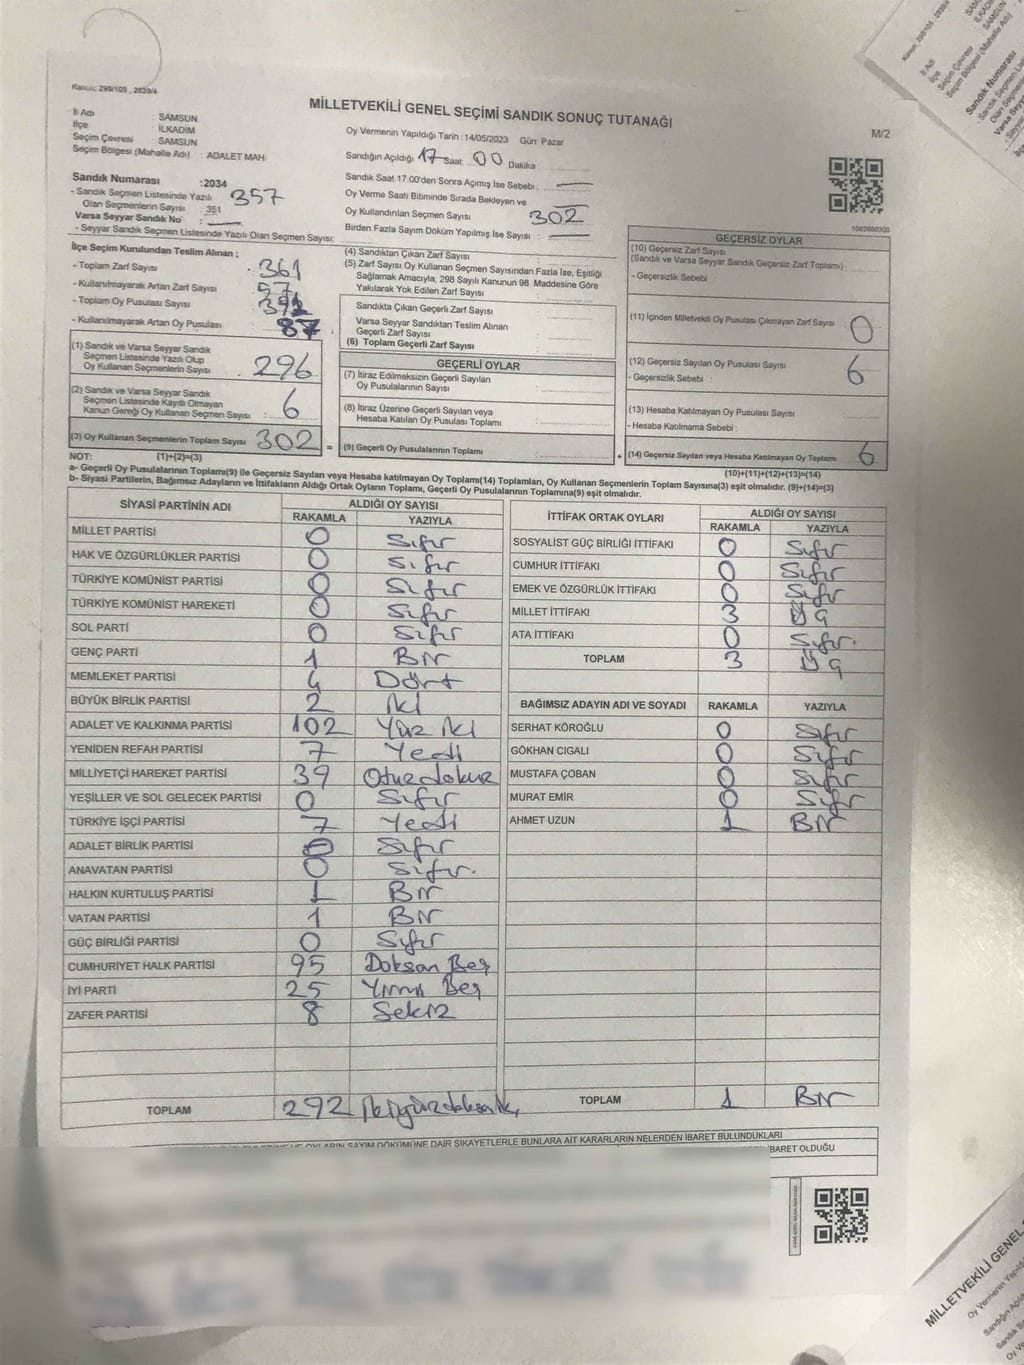 Kanun: 298/105, 2839/4
MİLLETVEKİLİ GENEL SEÇİMİ SANDIK SONUÇ TUTANAĞI
M/2
İl Adı : SAMSUN
İlçe : İLKADIM
Seçim Çevresi : SAMSUN
Seçim Bölgesi (Mahalle Adı) : ADALET MAH.
Sandık Numarası :2034
- Sandık Seçmen Listesinde Yazılı Olan Seçmenlerin Sayısı : 351 357
Varsa Seyyar Sandık No :
- Seyyar Sandık Seçmen Listesinde Yazılı Olan Seçmen Sayısı:
Oy Vermenin Yapıldığı Tarih :14/05/2023 Gün: Pazar
Sandığın Açıldığı 17 Saat 00 Dakika
Sandık Saat 17:00'den Sonra Açılmış İse Sebebi :
Oy Verme Saati Bitiminde Sırada Bekleyen ve
Oy Kullandırılan Seçmen Sayısı : 302
Birden Fazla Sayım Döküm Yapılmış İse Sayısı :
1083880300
İlçe Seçim Kurulundan Teslim Alınan ;
- Toplam Zarf Sayısı : 361
- Kullanılmayarak Artan Zarf Sayısı : 57
- Toplam Oy Pusulası Sayısı
- Kullanılmayarak Artan Oy Pusulası : 87
(1) Sandık ve Varsa Seyyar Sandık
Seçmen Listesinde Yazılı Olup
Oy Kullanan Seçmenlerin Sayısı : 296
(2) Sandık ve Varsa Seyyar Sandık
Seçmen Listesinde Kayıtlı Olmayan
Kanun Gereği Oy Kullanan Seçmen Sayısı : 6
(3) Oy Kullanan Seçmenlerin Toplam Sayısı 302 =
(4) Sandıktan Çıkan Zarf Sayısı :
(5) Zarf Sayısı Oy Kullanan Seçmen Sayısından Fazla İse, Eşitliği
Sağlamak Amacıyla, 298 Sayılı Kanunun 98. Maddesine Göre
Yakılarak Yok Edilen Zarf Sayısı
Sandıkta Çıkan Geçerli Zarf Sayısı :
Varsa Seyyar Sandıktan Teslim Alınan
Geçerli Zarf Sayısı :
(6) Toplam Geçerli Zarf Sayısı
GEÇERLİ OYLAR
(7) İtiraz Edilmeksizin Geçerli Sayılan
Oy Pusulalarının Sayısı :
(8) İtiraz Üzerine Geçerli Sayılan veya
Hesaba Katılan Oy Pusulası Toplamı :
(9) Geçerli Oy Pusulalarının Toplamı : +
GEÇERSİZ OYLAR
(10) Geçersiz Zarf Sayısı
(Sandık ve Varsa Seyyar Sandık Geçersiz Zarf Toplamı)
- Geçersizlik Sebebi
(11) İçinden Milletvekili Oy Pusulası Çıkmayan Zarf Sayısı : 0
(12) Geçersiz Sayılan Oy Pusulası Sayısı : 6
- Geçersizlik Sebebi :
(13) Hesaba Katılmayan Oy Pusulası Sayısı
- Hesaba Katılmama Sebebi :
(14) Geçersiz Sayılan veya Hesaba Katılmayan Oy Toplamı : 6
NOT: (1)+(2)=(3)
(10)+(11)+(12)+(13)=(14)
a- Geçerli Oy Pusulalarının Toplamı(9) ile Geçersiz Sayılan veya Hesaba katılmayan Oy Toplamı(14) Toplamları, Oy Kullanan Seçmenlerin Toplam Sayısına(3) eşit olmalıdır. (9)+(14)=(3)
b- Siyasi Partilerin, Bağımsız Adayların ve İttifakların Aldığı Ortak Oyların Toplamı, Geçerli Oy Pusulalarının Toplamına(9) eşit olmalıdır.
SİYASİ PARTİNİN ADI ALDIĞI OY SAYISI
RAKAMLA YAZIYLA
MİLLET PARTİSİ 0 Sıfır
HAK VE ÖZGÜRLÜKLER PARTİSİ 0 Sıfır
TÜRKİYE KOMÜNİST PARTİSİ 0 Sıfır
TÜRKİYE KOMÜNİST HAREKETİ 0 Sıfır
SOL PARTİ 0 Sıfır
GENÇ PARTİ 1 Bir
MEMLEKET PARTİSİ 4 Dört
BÜYÜK BİRLİK PARTİSİ 2 İki
ADALET VE KALKINMA PARTİSİ 102 Yüz iki
YENİDEN REFAH PARTİSİ 7 Yedi
MİLLİYETÇİ HAREKET PARTİSİ 39 Otuzdokuz
YEŞİLLER VE SOL GELECEK PARTİSİ 0 Sıfır
TÜRKİYE İŞÇİ PARTİSİ 7 Yedi
ADALET BİRLİK PARTİSİ 0 Sıfır
ANAVATAN PARTİSİ 0 Sıfır.
HALKIN KURTULUŞ PARTİSİ 1 Bir
VATAN PARTİSİ 1 Bir
GÜÇ BİRLİĞİ PARTİSİ 0 Sıfır
CUMHURİYET HALK PARTİSİ 95 Doksan Beş
İYİ PARTİ 25 Yirmi Beş
ZAFER PARTİSİ 8 Sekiz
TOPLAM 292
İTTİFAK ORTAK OYLARI ALDIĞI OY SAYISI
RAKAMLA YAZIYLA
SOSYALİST GÜÇ BİRLİĞİ İTTİFAKI 0 Sıfır
CUMHUR İTTİFAKI 0 Sıfır
EMEK VE ÖZGÜRLÜK İTTİFAKI 0 Sıfır
MİLLET İTTİFAKI 3 Üç
ATA İTTİFAKI 0 Sıfır.
TOPLAM 3 Üç
BAĞIMSIZ ADAYIN ADI VE SOYADI RAKAMLA YAZIYLA
SERHAT KÖROĞLU 0 Sıfır
GÖKHAN CIGALI 0 Sıfır
MUSTAFA ÇOBAN 0 Sıfır
MURAT EMİR 0 Sıfır
AHMET UZUN 1 Bir
TOPLAM 1 Bir
OYLARIN SAYIM DÖKÜMÜNE DAİR ŞİKAYETLERLE BUNLARA AİT KARARLARIN NELERDEN İBARET BULUNDUKLARI
İBARET OLDUĞU
MİLLETVEKİLİ GENEL
Oy Vermenin Yapıldı